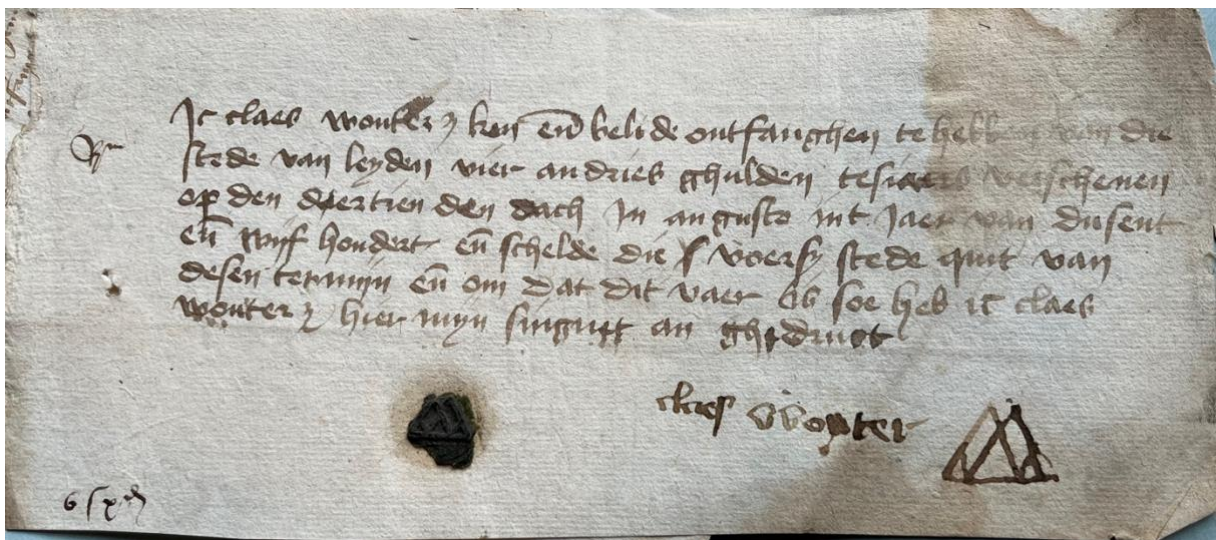 Ic claes wouter z ken en̄ belide ontfanghen te hebben van die
stede van leyden vier andries ghulden tesiaers verschenen
op den dertien den dach in augusto int Jaer van dusent
en̄ vyf hondert en̄ schelde die voers stede quit van
desen termijn en̄ om dat dit vaer is soe heb ic claes
wouter z hier mijn singnet an ghedruct
claes wouter